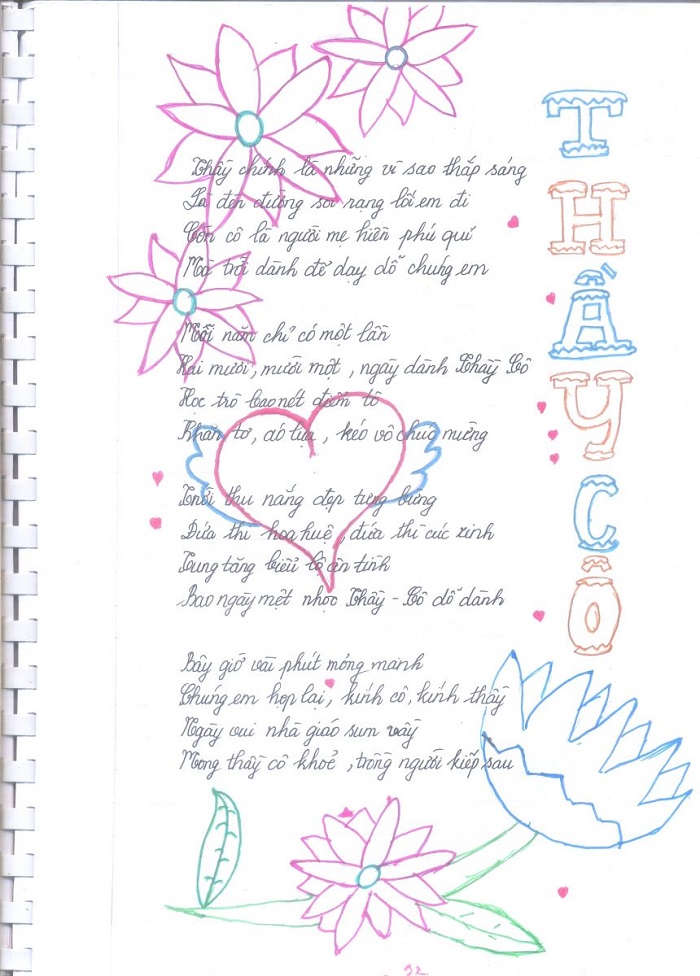 THẦY CÔ
Thầy chính là những vì sao thắp sáng
Là đèn đường soi rạng lối em đi
Còn cô là người mẹ hiền phú quí
Mà trời dành để dạy dỗ chúng em
Mỗi năm chỉ có một lần
Hai mươi, mười một, ngày dành Thầy Cô
Học trò bao nét điểm tô
Khăn tơ, áo lụa, kéo vô chúc mừng
Trời thu nắng đẹp tưng bừng
Đứa thì hoa huệ, đứa thì cúc xinh
Tung tăng biểu lộ ân tình
Bao ngày mệt nhọc Thầy - Cô dỗ dành
Bây giờ vài phút mỏng manh
Chúng em họp lại, kính cô, kính thầy
Ngày vui nhà giáo sum vầy
Mong thầy cô khoẻ, trồng người kiếp sau
92